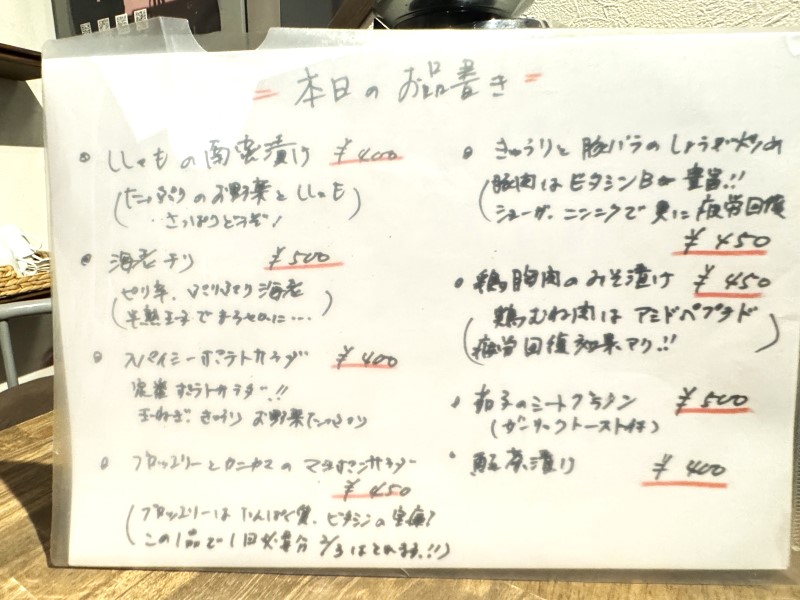 = 本日のお品書き =
・ししゃもの南蛮漬け ¥400
(たっぷりのお野菜とししゃも
さっぱりどうぞ!)
・海老チリ ¥500
(ピリ辛、ぷりぷり海老
半熟玉子でまろやかに…)
・スパイシーポテトサラダ ¥400
定番ポテトサラダ!!
玉ねぎ、きゅうり お野菜たっぷり
・ブロッコリーとカニカマのマヨポンサラダ
¥450
(ブロッコリーはたんぱく質、ビタミンの宝庫?
この1品で1日必要分 2/3はとれます!!)
・きゅうりと豚バラのしょうが炒め
(豚肉はビタミンBが豊富!!
ショーガ、ニンニクで更に疲労回復
¥450
・鶏胸肉のみそ漬け ¥450
(鶏むね肉はアミドペプチド
疲労回復効果アリ!!)
・茄子のミートグラタン ¥500
(ガーリックトースト付)
・鮭茶漬け ¥400